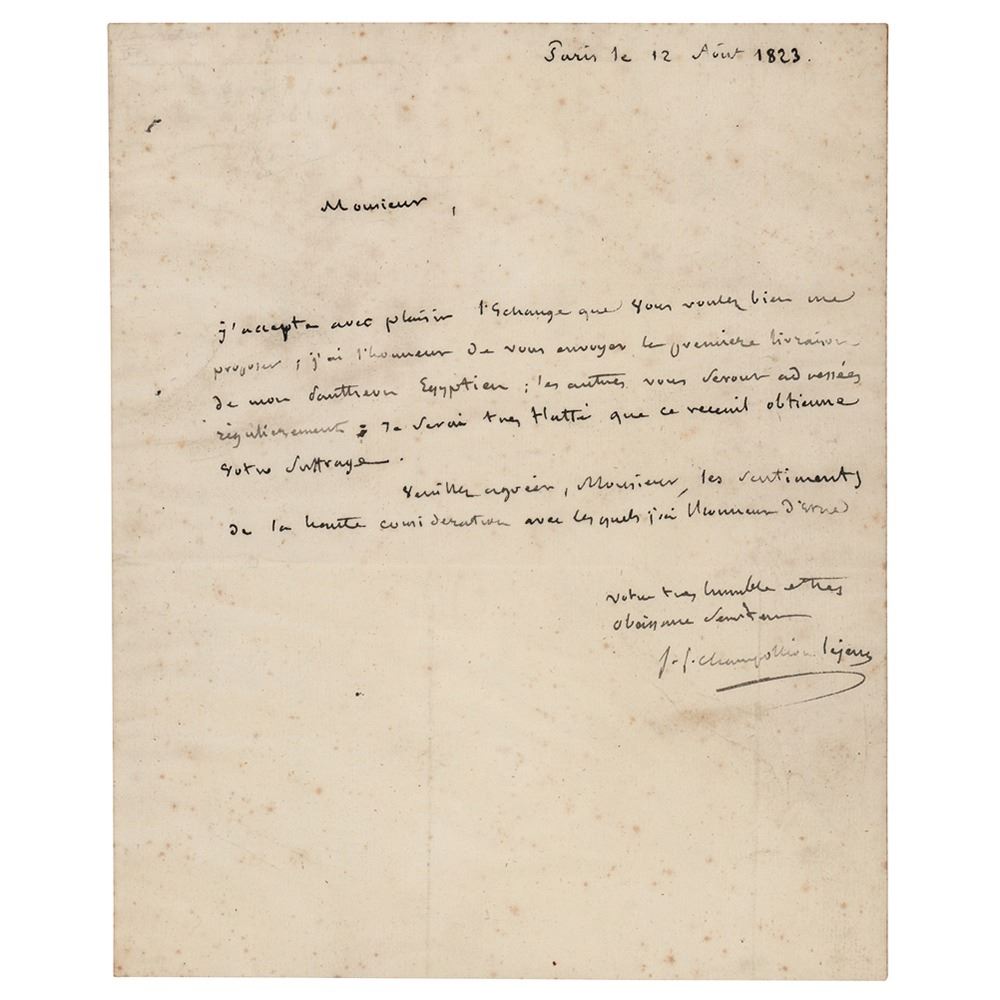 Paris le 12 Août 1823.
Monsieur,
j'accepte avec plaisir l'Echange que vous voulez bien me
proposer ; j'ai l'honneur de vous envoyer la premiere livraison
de mon Panthéon Egyptien ; les autres vous seront adressées
régulierement ; Je serai tres flatté que ce recueil obtienne
votre suffrage.
Veuillez agréer, Monsieur, les sentiments
de la haute consideration avec lesquels j'ai l'honneur d'Etre
votre tres humble et tres
obéissant serviteur
J. f. champollion lejeune